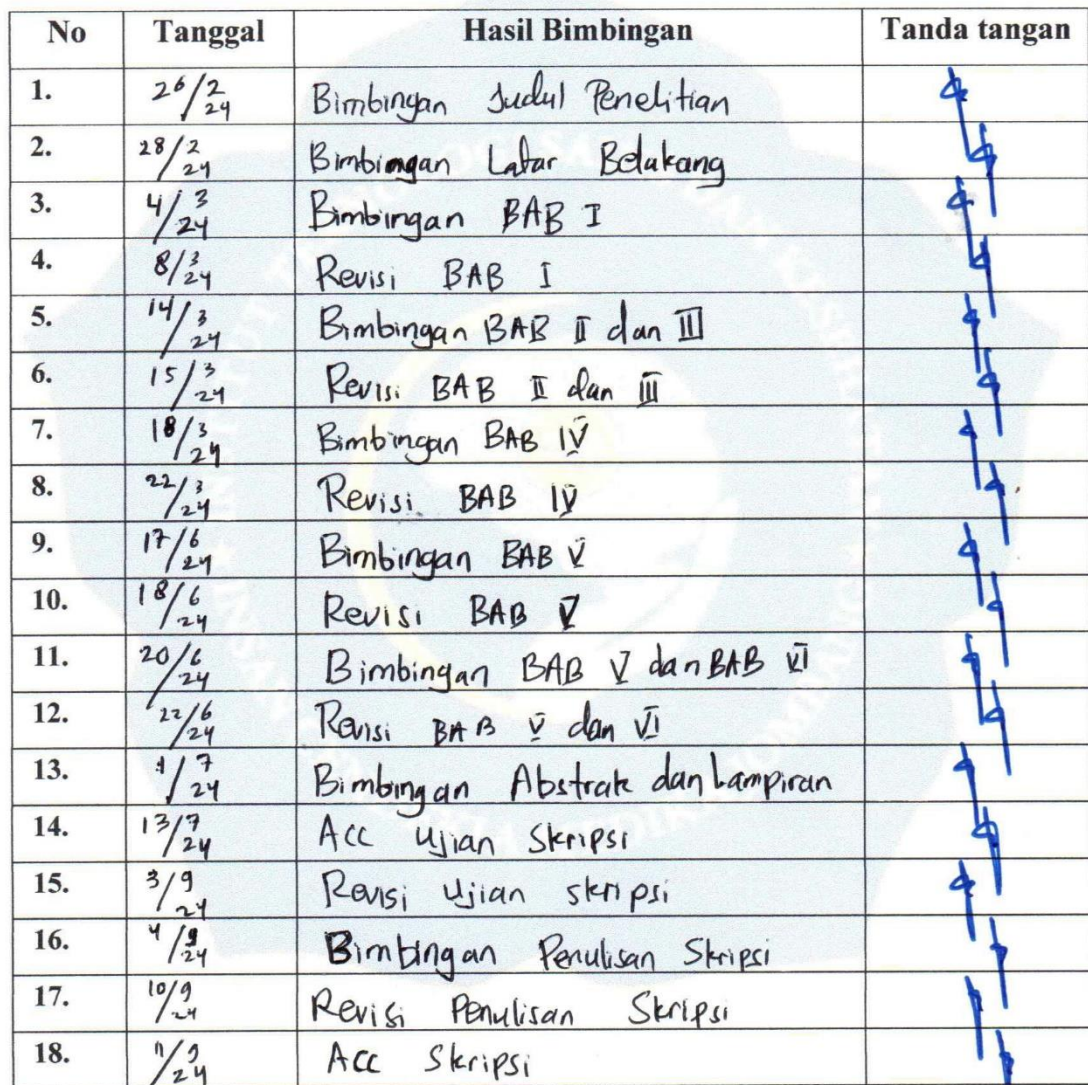 No Tanggal Hasil Bimbingan Tanda tangan
1. 26/2 24 Bimbingan Judul Penelitian
2. 28/2 24 Bimbingan Latar Belakang
3. 4/3 24 Bimbingan BAB I
4. 8/3 24 Revisi BAB I
5. 14/3 24 Bimbingan BAB II dan III
6. 15/3 24 Revisi BAB II dan III
7. 18/3 24 Bimbingan BAB IV
8. 22/3 24 Revisi BAB IV
9. 17/6 24 Bimbingan BAB V
10. 18/6 24 Revisi BAB V
11. 20/6 24 Bimbingan BAB V dan BAB VI
12. 22/6 24 Revisi BAB V dan VI
13. 1/7 24 Bimbingan Abstrak dan Lampiran
14. 13/7 24 Acc Ujian Skripsi
15. 3/9 24 Revisi Ujian skripsi
16. 4/9 24 Bimbingan Penulisan Skripsi
17. 10/9 24 Revisi Penulisan Skripsi
18. 11/9 24 Acc Skripsi